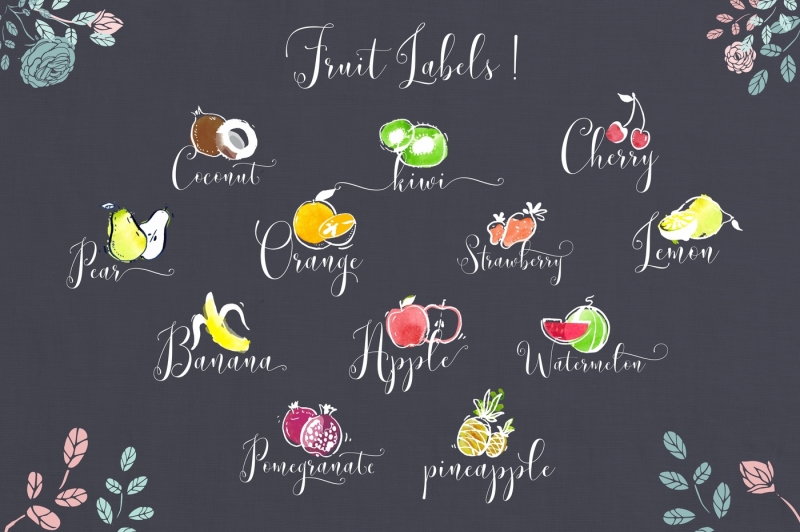 Fruit Labels !
Coconut
kiwi
Cherry
Pear
Orange
Strawberry
Lemon
Banana
Apple
Watermelon
Pomegranate
pineapple